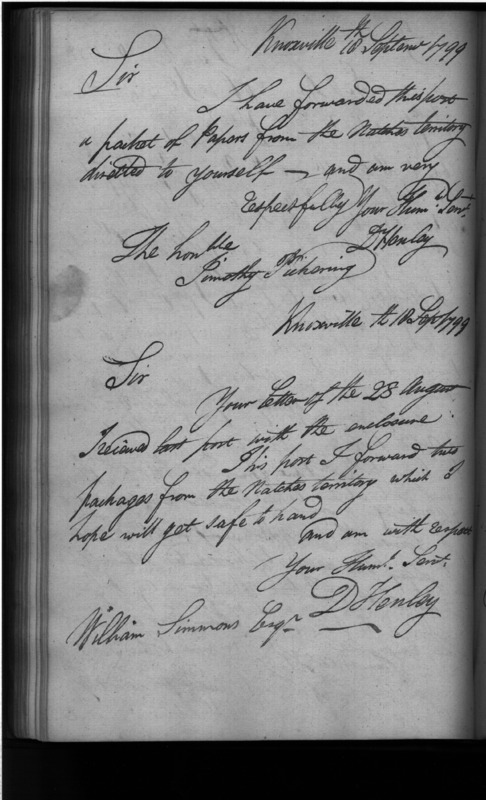 Knoxville th 18 Septemr 1799
Sir
I have forwarded this post
a packet of Papers from the Natches territory
directed to yourself — and am very
respectfully Your Humb. Servt.
D Henley
The honble
Timothy Pickering
Knoxville th 18 Sept 1799
Sir
Your Letter of the 28 August
I recieved last post with the enclosure
This post I forward two
packages from the Natches territory which I
hope will get safe to hand
and am with respect
Your Humb. Servt.
D Henley
William Simmons Esqr